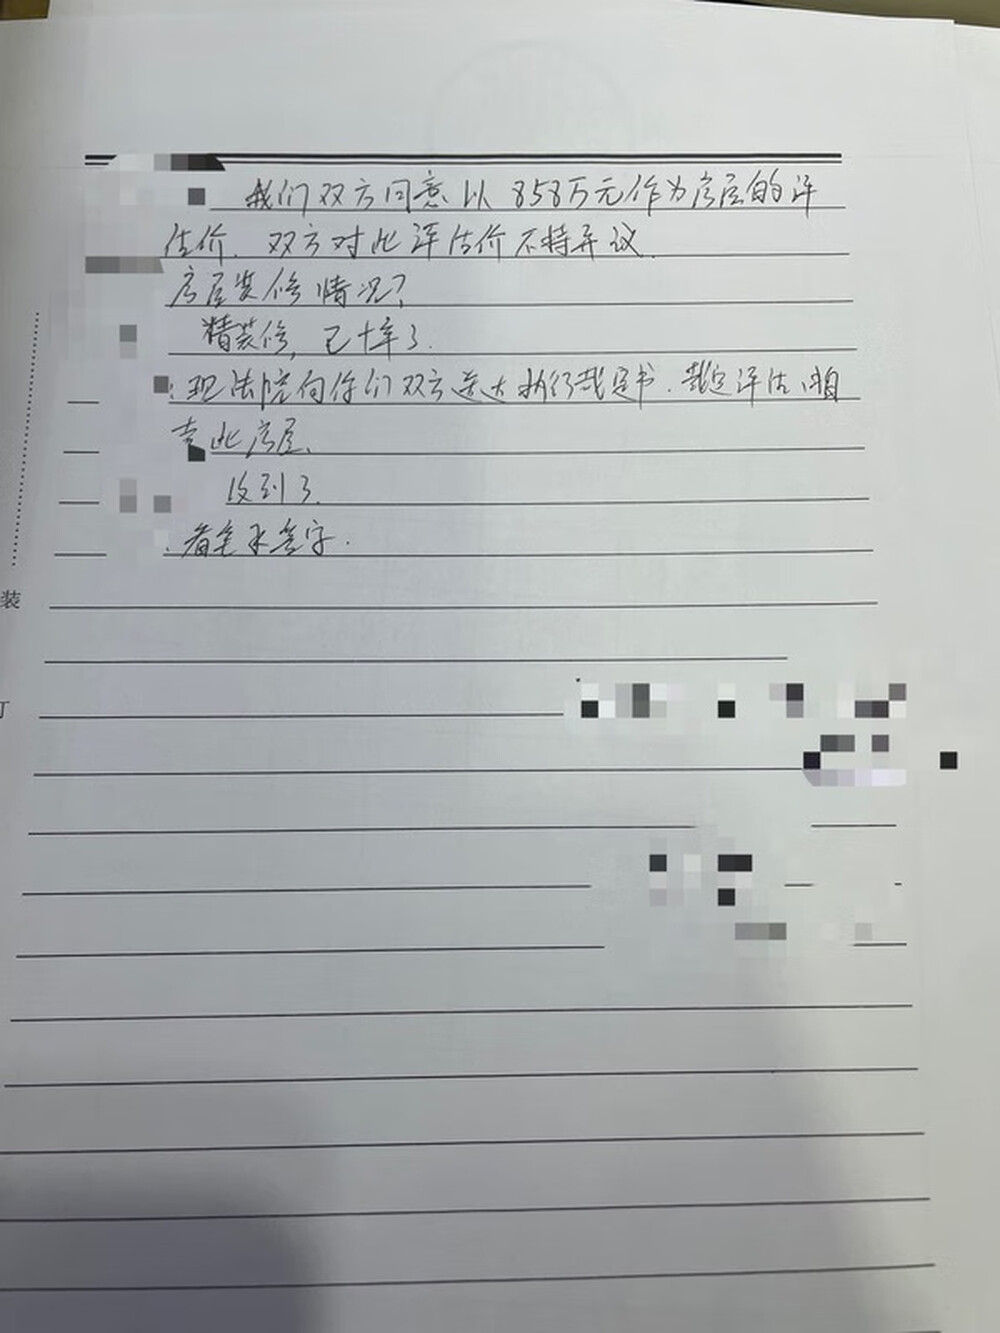 我们双方同意以858万元作为房屋的评
估价.双方对此评估价不持异议.
房屋装修情况?
精装修,已十年了.
:现法院向你们双方送达执行裁定书.裁定评估、拍
卖此房屋.
收到了.
.看笔录签字.
装
订